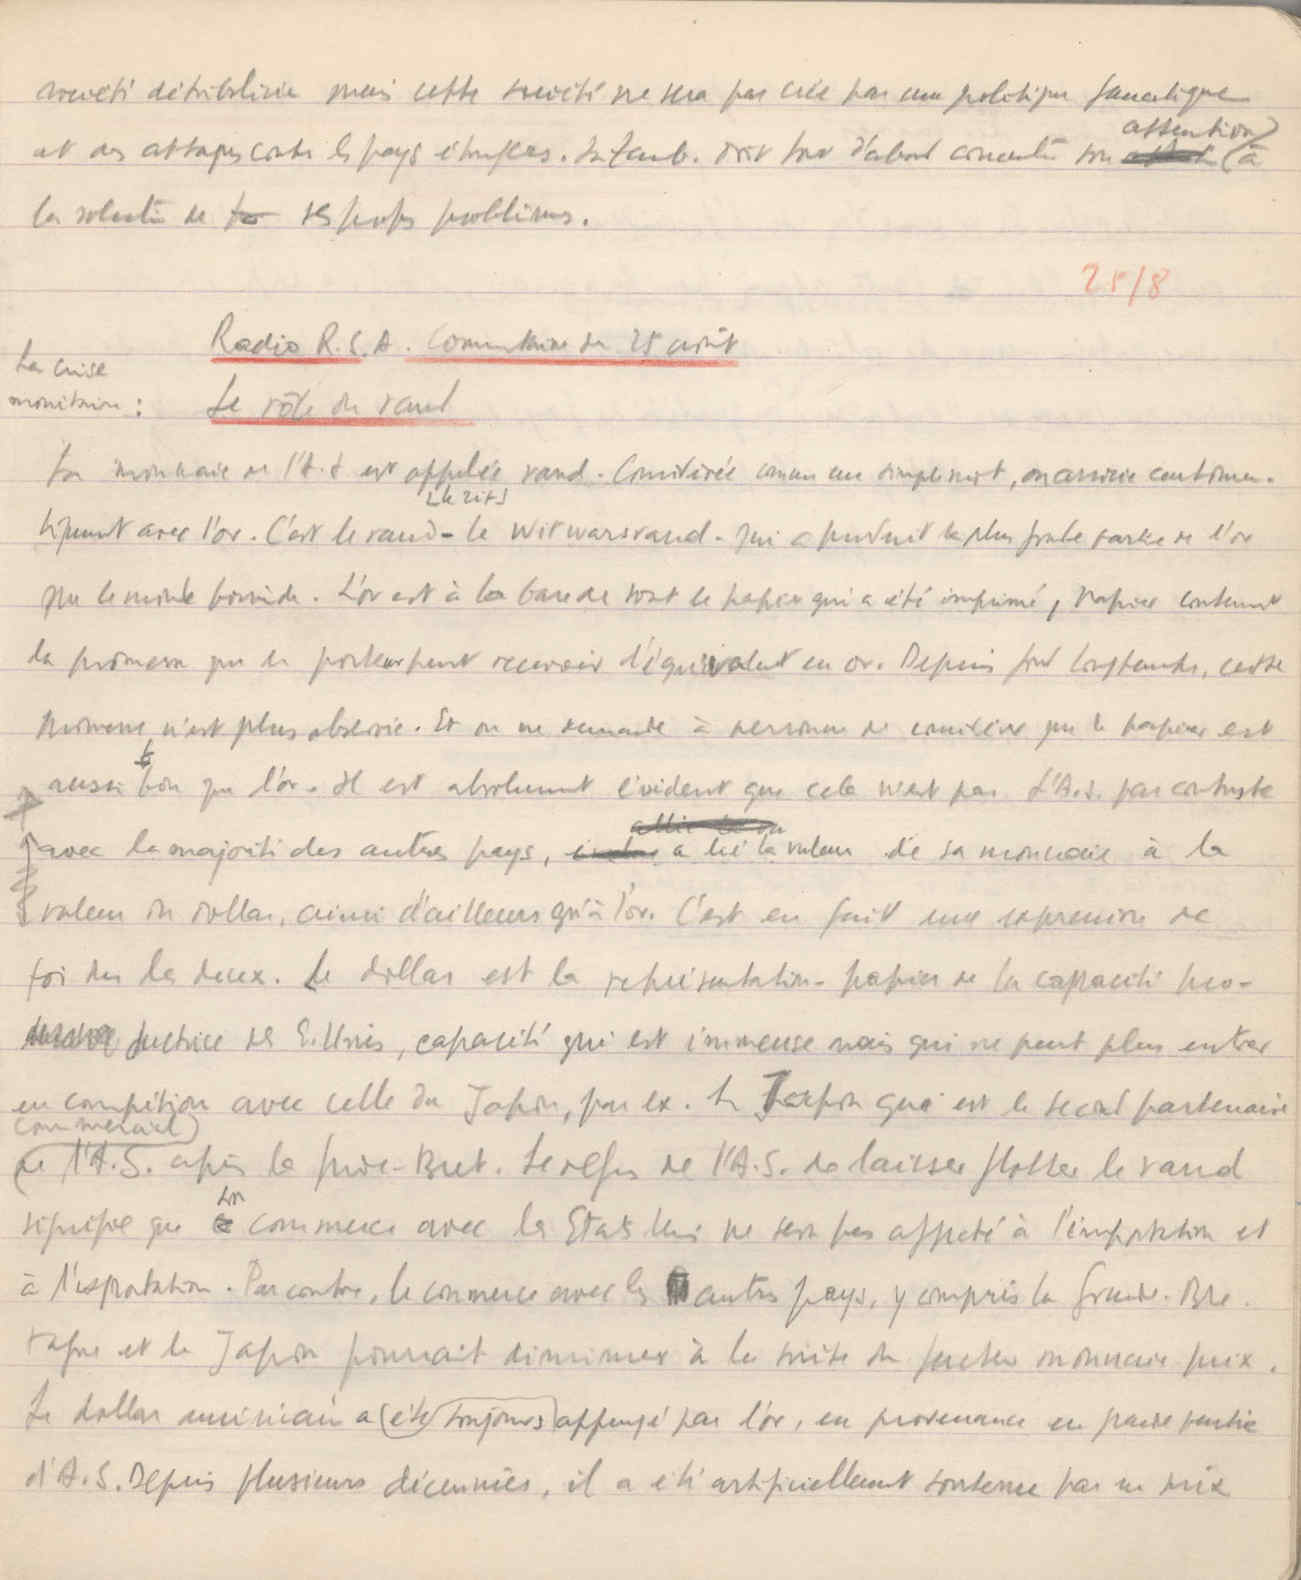 société détribalisée mais cette société ne sera pas créée par une politique fanatique
et des attaques contre les pays étrangers. La Zamb. doit tout d'abord concentrer son attention à
la solution de ses propres problèmes.
25/8
Radio R.S.A. Commentaire du 25 août
La crise
monétaire :
Le rôle du rand
La monnaie de l'A.S est appelée rand. Considérée comme un simple mot, on associe
avec l'or. C'est le rand - le Witwatersrand - qui a produit la plus grande partie de l'or
que le monde possède. L'or est à la base de tout le papier qui a été imprimé, papier contenant
la promesse que le porteur peut recevoir l'équivalent en or. Depuis fort longtemps, cette
promesse n'est plus observée. Et on ne demande à personne de considérer que le papier est
aussi bon que l'or. Il est absolument évident que cela n'est pas. L'A.S. par contraste
avec la majorité des autres pays, a lié la valeur de sa monnaie à la
valeur du dollar, ainsi d'ailleurs qu'à l'or. C'est en fait une expression de
foi dans les deux. Le dollar est la représentation-papier de la capacité pro-
ductrice des E.Unis, capacité qui est immense mais qui ne peut plus entrer
en compétition avec celle du Japon, par ex. Le Japon qui est le second partenaire
commercial
de l'A.S. après la Grde-Bret. Le refus de l'A.S. de laisser flotter le rand
signifie que son commerce avec les Etats Unis ne sera pas affecté à l'importation et
à l'exportation. Par contre, le commerce avec les autres pays, y compris la Grande-Bre-
tagne et le Japon pourrait diminuer à la suite du facteur monnaie prix.
Le dollar américain a été toujours appuyé par l'or, en provenance en grande partie
d'A.S. Depuis plusieurs décennies, il a été artificiellement soutenu par un prix